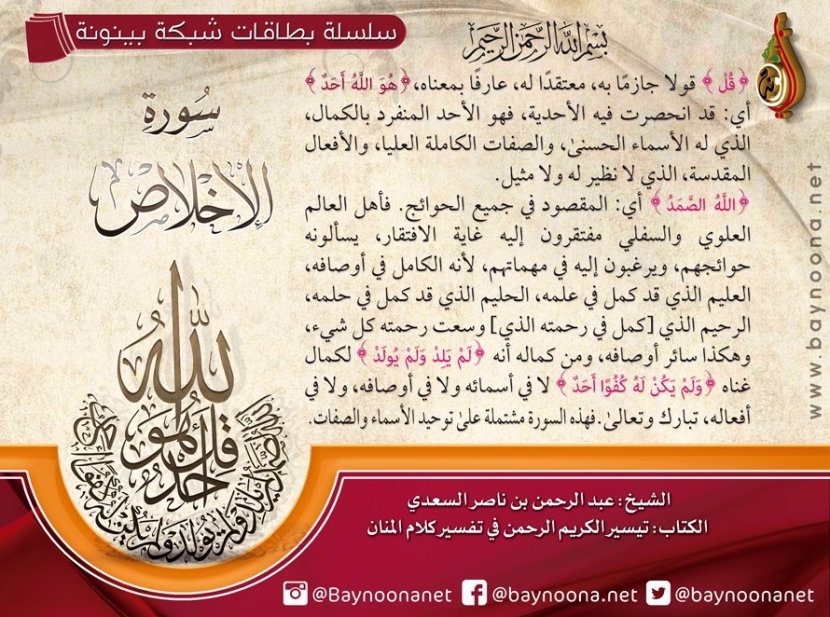 سلسلة بطاقات شبكة بينونة
بسم الله الرحمن الرحيم
سُورَة
الإخلاص
﴿ قُلْ ﴾ قولا جازمًا به، معتقدًا له، عارفًا بمعناه، ﴿ هُوَ اللَّهُ أَحَدٌ ﴾
أي: قد انحصرت فيه الأحدية، فهو الأحد المنفرد بالكمال،
الذي له الأسماء الحسنىٰ، والصفات الكاملة العليا، والأفعال
المقدسة، الذي لا نظير له ولا مثيل.
﴿ اللَّهُ الصَّمَدُ ﴾ أي: المقصود في جميع الحوائج. فأهل العالم
العلوي والسفلي مفتقرون إليه غاية الافتقار، يسألونه
حوائجهم، ويرغبون إليه في مهماتهم، لأنه الكامل في أوصافه،
العليم الذي قد كمل في علمه، الحليم الذي قد كمل في حلمه،
الرحيم الذي [كمل في رحمته الذي] وسعت رحمته كل شيء،
وهكذا سائر أوصافه، ومن كماله أنه ﴿ لَمْ يَلِدْ وَلَمْ يُولَدْ ﴾ لكمال
غناه ﴿ وَلَمْ يَكُنْ لَهُ كُفُوًا أَحَدٌ ﴾ لا في أسمائه ولا في أوصافه، ولا في
أفعاله، تبارك وتعالىٰ. فهذه السورة مشتملة علىٰ توحيد الأسماء والصفات.
www.baynoona.net
الله
قل هو
أحد
الشيخ: عبد الرحمن بن ناصر السعدي
الكتاب: تيسير الكريم الرحمن في تفسير كلام المنان
@Baynoonanet @baynoona.net @baynoonanet